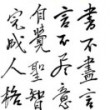 書不盡言
言不盡意
自覺聖智
完成人格